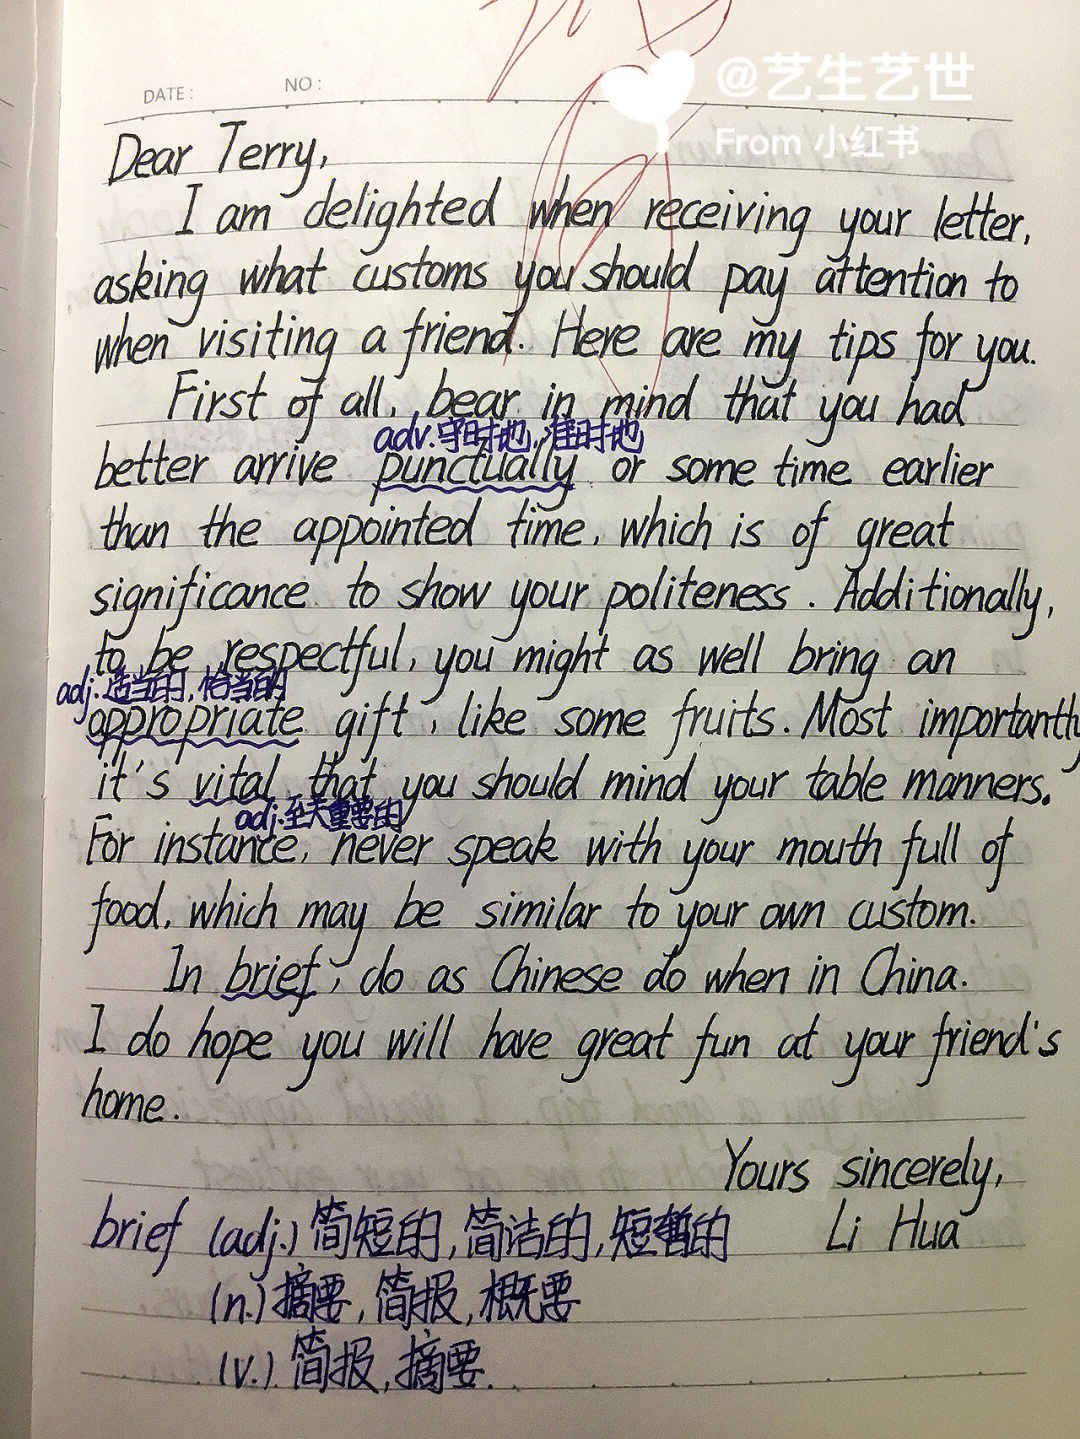 @艺生艺世
From 小红书
DATE: NO:
Dear Terry,
I am delighted when receiving your letter,
asking what customs you should pay attention to
when visiting a friend. Here are my tips for you.
First of all, bear in mind that you had
adv.守时地,准时地
better arrive punctually or some time earlier
than the appointed time, which is of great
significance to show your politeness. Additionally,
to be respectful, you might as well bring an
adj.适当的,恰当的
appropriate gift, like some fruits. Most importantly
it's vital that you should mind your table manners.
adj.至关重要的
For instance, never speak with your mouth full of
food, which may be similar to your own custom.
In brief, do as Chinese do when in China.
I do hope you will have great fun at your friend's
home.
Yours sincerely,
Li Hua
brief (adj.) 简短的,简洁的,短暂的
(n.) 摘要,简报,概要
(v.) 简报,摘要.